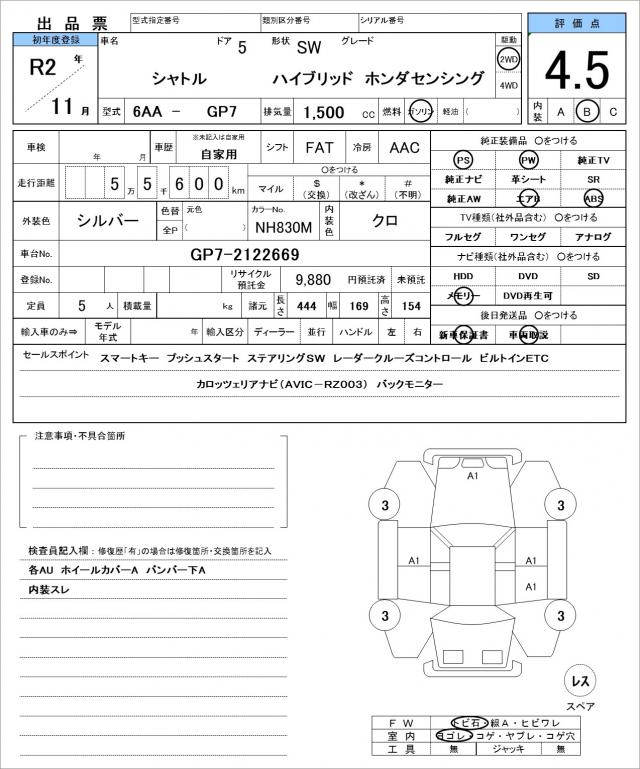 出品票 型式指定番号 類別区分番号 シリアル番号 評価点
初年度登録 車名 ドア 5 形状 SW グレード 駆動
R2 年 シャトル ハイブリッド ホンダセンシング 2WD 4WD 4.5
11 月 型式 6AA － GP7 排気量 1,500 cc 燃料 ガソリン 軽油 ( ) 内装 A B C
車検 年 月 車歴 ※未記入は自家用 自家用 シフト FAT 冷房 AAC 純正装備品 〇をつける
PS PW 純正TV
走行距離 5 万 5 千 6 0 0 km 〇をつける マイル $ (交換) * (改ざん) # (不明) 純正ナビ 革シート SR
純正AW エアB ABS
外装色 シルバー 色替 元色 全P ( ) カラーNo. NH830M 内装色 クロ TV種類(社外品含む) 〇をつける
フルセグ ワンセグ アナログ
車台No. GP7-2122669 ナビ種類(社外品含む) 〇をつける
登録No. リサイクル預託金 9,880 円預託済 未預託 HDD DVD SD
定員 5 人 積載量 kg 諸元 長さ 444 幅 169 高さ 154 メモリー DVD再生可
後日発送品 〇をつける
輸入車のみ⇒ モデル年式 年 輸入区分 ディーラー 並行 ハンドル 左 右 新車保証書 車両取説
セールスポイント スマートキー プッシュスタート ステアリングSW レーダークルーズコントロール ビルトインETC
カロッツェリアナビ(AVIC－RZ003) バックモニター
注意事項・不具合箇所
検査員記入欄：修復歴「有」の場合は修復箇所・交換箇所を記入
各AU ホイールカバーA バンパー下A
内装スレ
A1
3 3
A1 A1
A1
3 3
レス
スペア
FW トビ石・線A・ヒビワレ
室内 ヨゴレ・コゲ・ヤブレ・コゲ穴
工具 無 ジャッキ 無